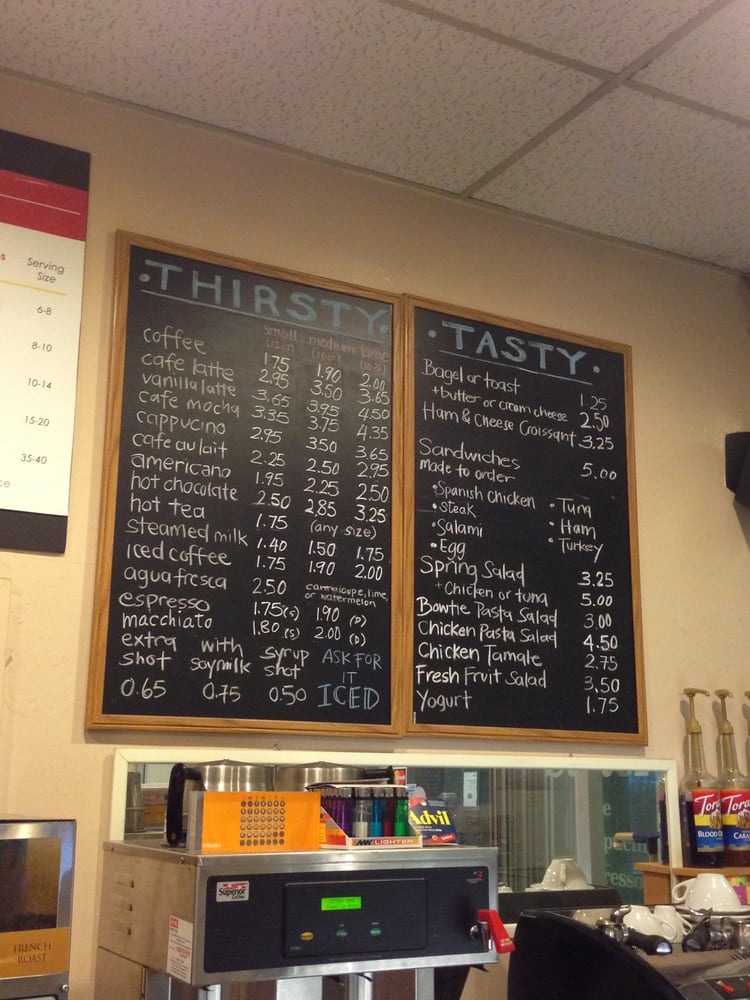 Serving
Size
6-8
8-10
10-14
15-20
35-40
• THIRSTY •
small medium large
(12oz) (16oz) (20oz)
coffee 1.75 1.90 2.00
cafe latte 2.95 3.50 3.65
vanilla latte 3.65 3.95 4.50
cafe mocha 3.35 3.75 4.35
cappucino 2.95 3.50 3.65
cafe au lait 2.25 2.50 2.95
americano 1.95 2.25 2.50
hot chocolate 2.50 2.85 3.25
hot tea 1.75 (any size)
steamed milk 1.40 1.50 1.75
iced coffee 1.75 1.90 2.00
agua fresca 2.50 canteloupe, lime,
or watermelon
espresso 1.75(s) 1.90 (D)
macchiato 1.80 (s) 2.00 (D)
extra with syrup
shot soymilk shot
0.65 0.75 0.50
ASK FOR
IT
ICED
• TASTY •
Bagel or toast 1.25
+butter or cream cheese 2.50
Ham & Cheese Croissant 3.25
Sandwiches 5.00
made to order
• Spanish Chicken • Tuna
• steak • Ham
• Salami • Turkey
• Egg
Spring Salad 3.25
+Chicken or tuna 5.00
Bowtie Pasta Salad 3.00
Chicken Pasta Salad 4.50
Chicken Tamale 2.75
Fresh Fruit Salad 3.50
Yogurt 1.75
Advil
MK LIGHTER
Superior
Coffee
FRENCH
ROAST
Tor
BLOOD O
Tora
CARA